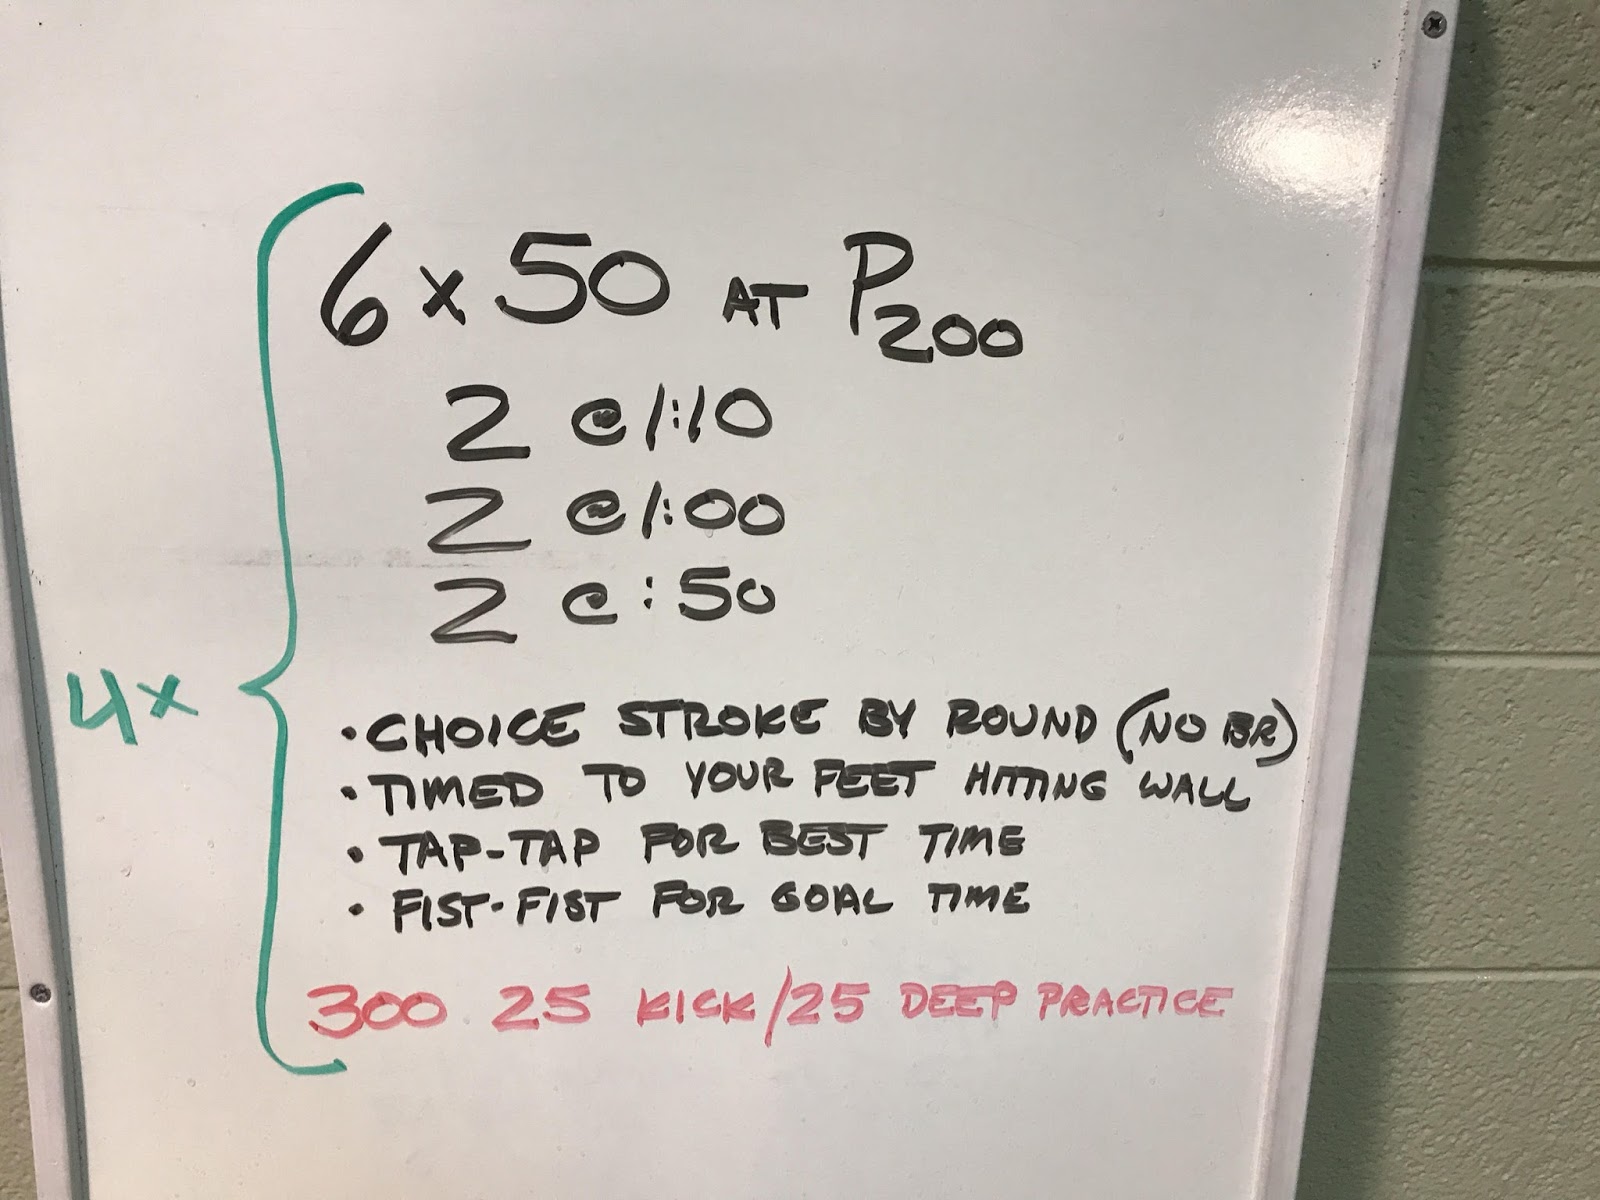 6 x 50 AT P200
2 @ 1:10
2 @ 1:00
2 @ :50
4x
• CHOICE STROKE BY ROUND (NO BR)
• TIMED TO YOUR FEET HITTING WALL
• TAP-TAP FOR BEST TIME
• FIST-FIST FOR GOAL TIME
300 25 KICK/25 DEEP PRACTICE